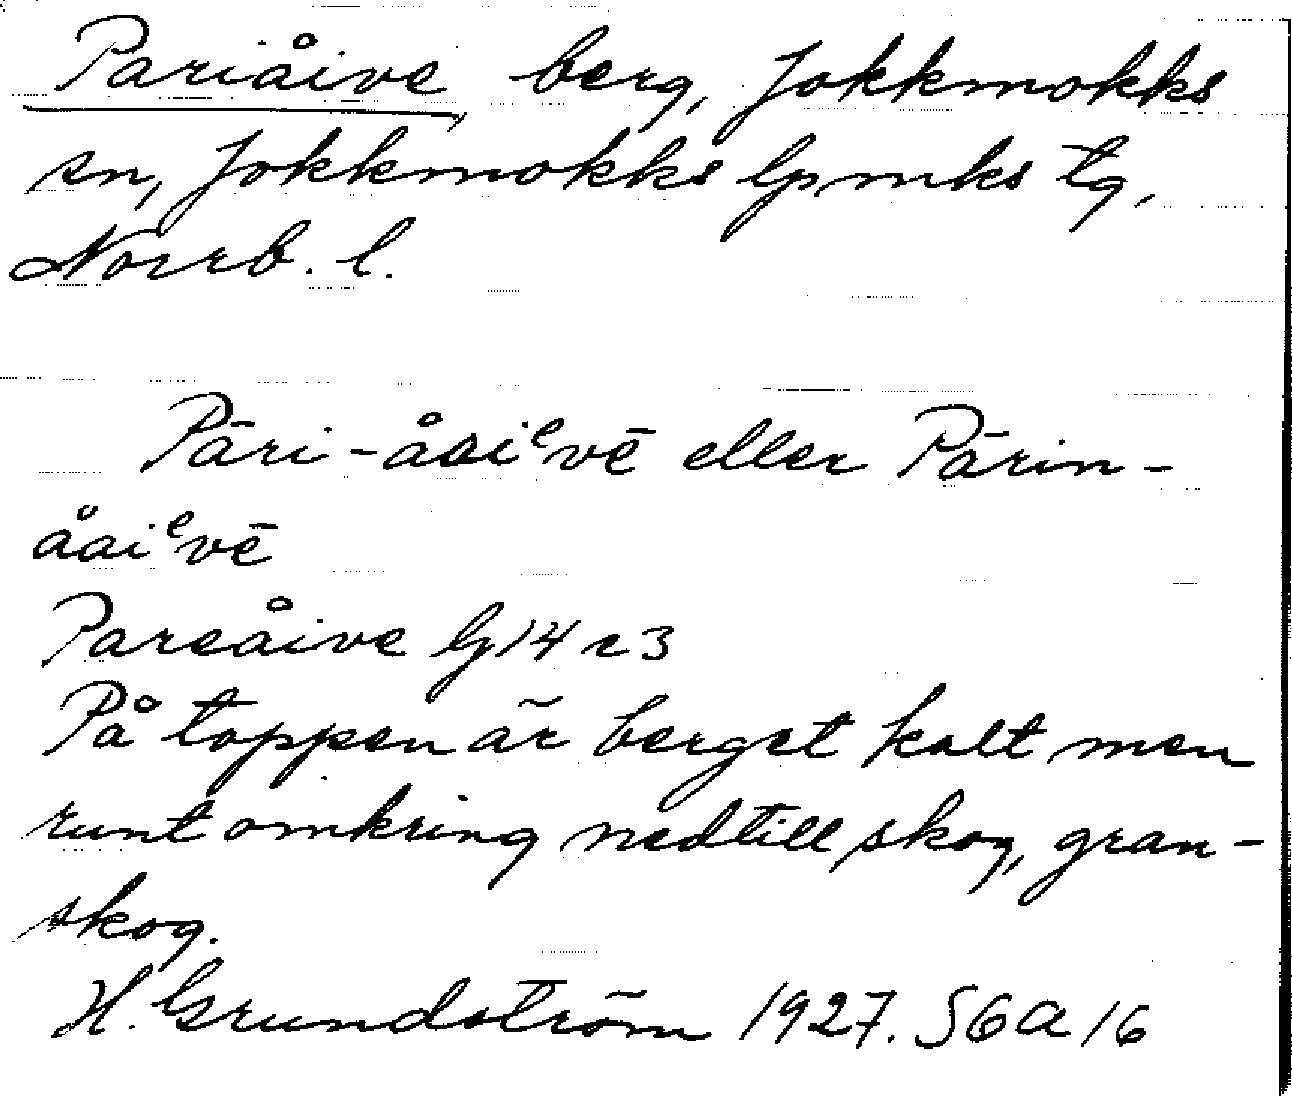 Pariåive berg, Jokkmokks
sn, Jokkmokks lpmks tg,
Norrb. l.
Pāri-åaiᵉvē eller Pārin-
åaiᵉvē
Pareåive G14 r3
På toppen är berget kalt men
runt omkring nedtill skog, gran-
skog.
H. Grundström 1927. S6a16